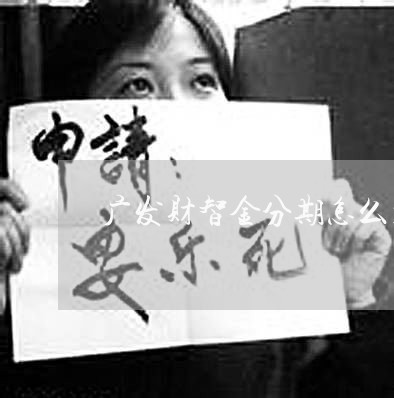 申請：
广发财智金分期怎么
安乐死